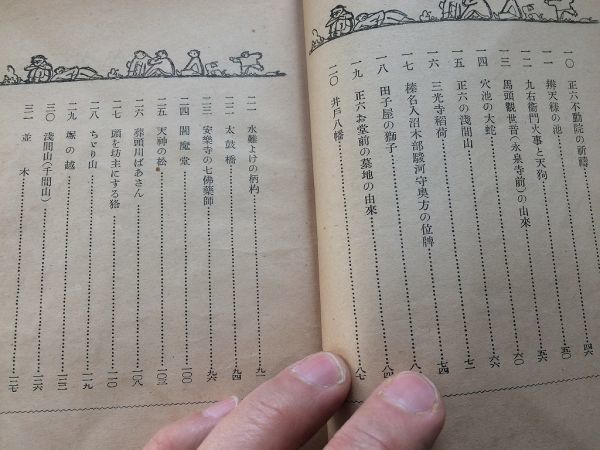 一〇 正六不動院の祈禱……四六
一一 辨天様の池……五〇
一二 九右衞門火事と天狗……五六
一三 馬頭觀世音(永泉寺前)の由來……六〇
一四 穴池の大蛇……六六
一五 正六の淺間山……七一
一六 三光寺稻荷……七四
一七 榛名入沼木部駿河守奥方の位牌……八
一八 田子屋の獅子……八四
一九 正六お堂前の墓地の由來……八七
二〇 井戸八幡
二一 水難よけの柄杓……九一
二二 太鼓橋……九四
二三 安樂寺の七佛藥師……九六
二四 閻魔堂……一〇〇
二五 天神の松……一〇三
二六 葬頭川ばあさん……一〇八
二七 頭を坊主にする狢……一一〇
二八 ちどり山……一一九
二九 塚の越……一二二
三〇 淺間山(千間山)……一二六
三一 並木……一二七